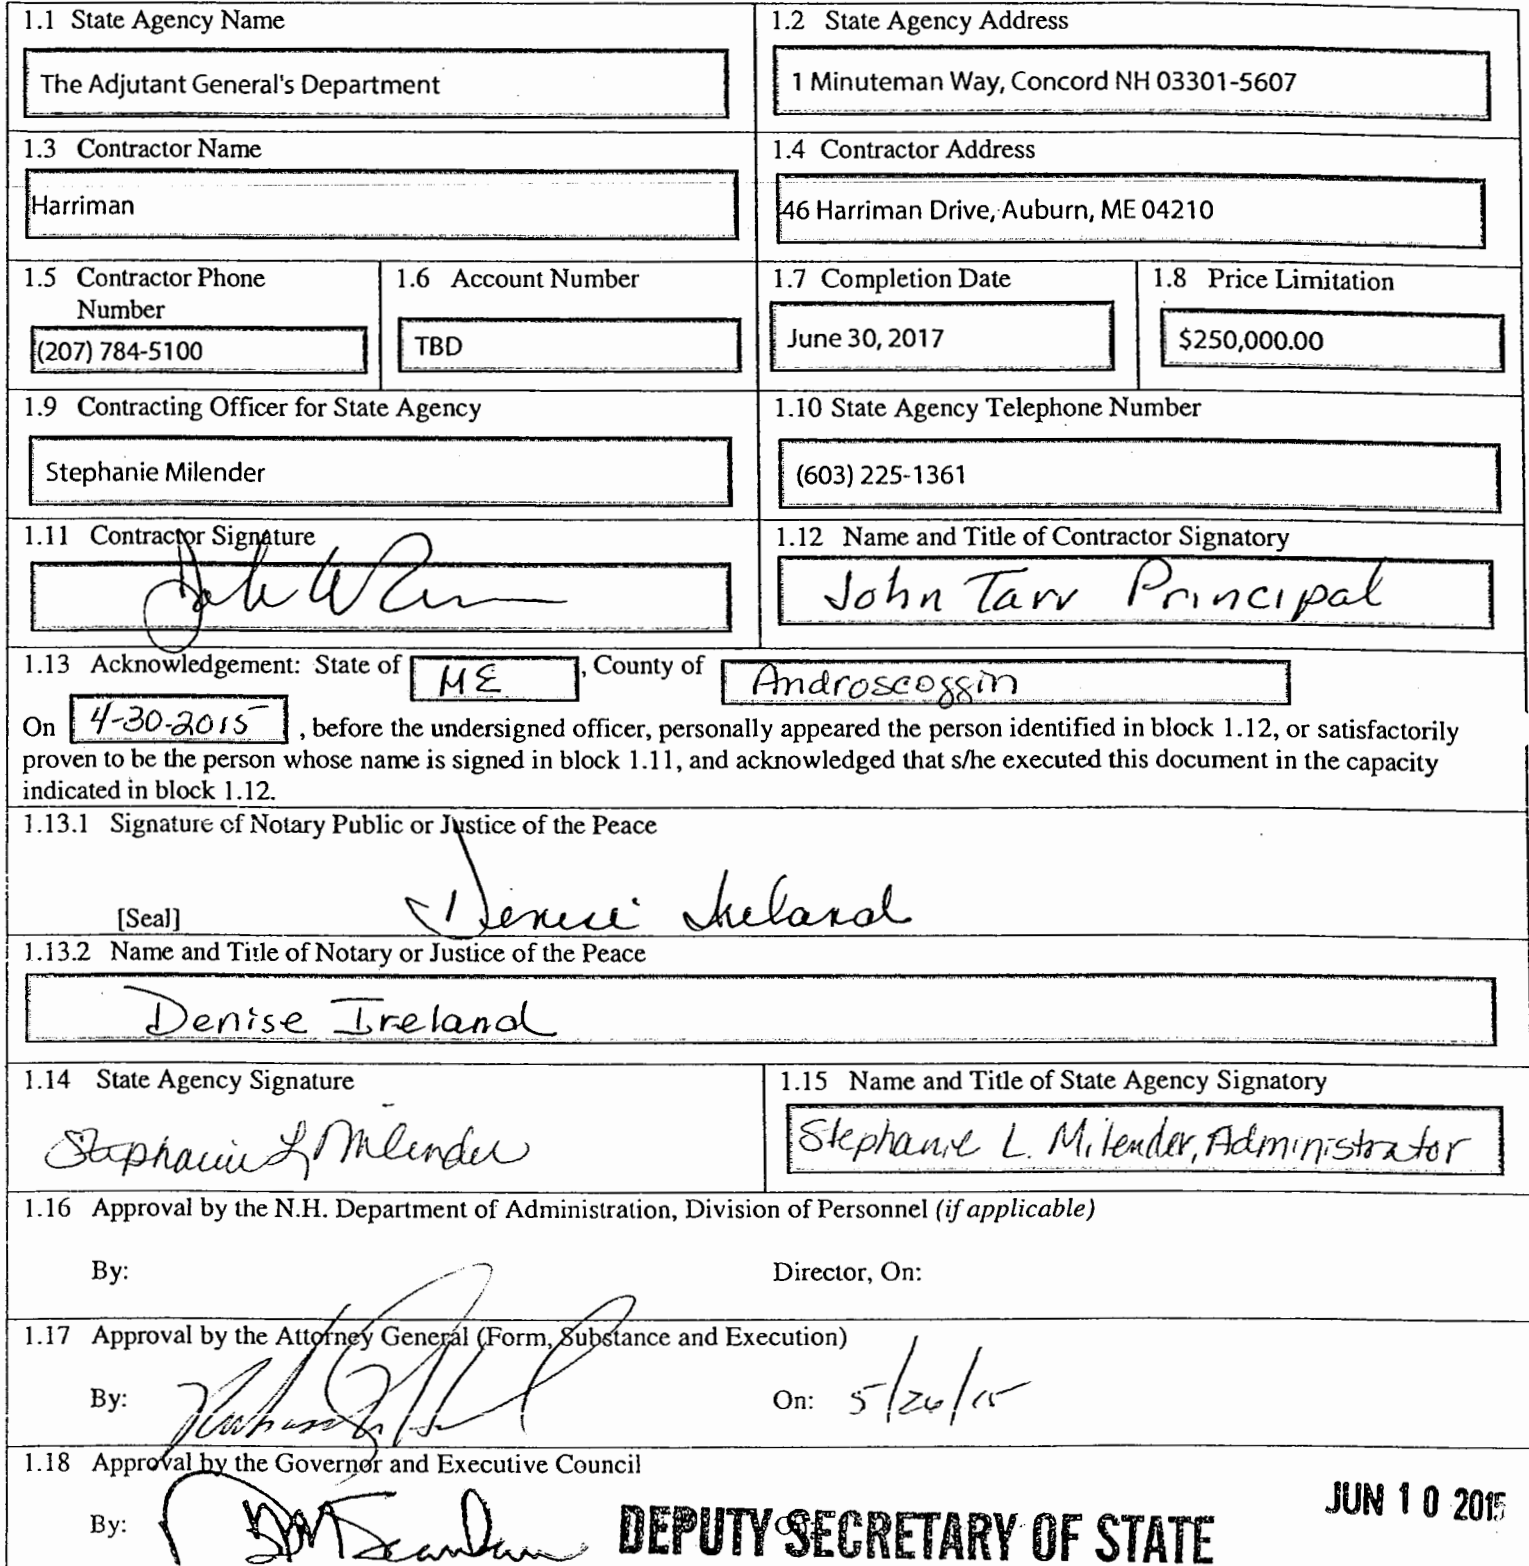 1.1 State Agency Name
The Adjutant General's Department
1.2 State Agency Address
1 Minuteman Way, Concord NH 03301-5607
1.3 Contractor Name
Harriman
1.4 Contractor Address
46 Harriman Drive, Auburn, ME 04210
1.5 Contractor Phone
Number
(207) 784-5100
1.6 Account Number
TBD
1.7 Completion Date
June 30, 2017
1.8 Price Limitation
$250,000.00
1.9 Contracting Officer for State Agency
Stephanie Milender
1.10 State Agency Telephone Number
(603) 225-1361
1.11 Contractor Signature
1.12 Name and Title of Contractor Signatory
John Tarr Principal
1.13 Acknowledgement: State of ME, County of Androscoggin
On 4-30-2015, before the undersigned officer, personally appeared the person identified in block 1.12, or satisfactorily
proven to be the person whose name is signed in block 1.11, and acknowledged that s/he executed this document in the capacity
indicated in block 1.12.
1.13.1 Signature of Notary Public or Justice of the Peace
[Seal] Denise Ireland
1.13.2 Name and Title of Notary or Justice of the Peace
Denise Ireland
1.14 State Agency Signature
Stephanie L Milender
1.15 Name and Title of State Agency Signatory
Stephanie L. Milender, Administrator
1.16 Approval by the N.H. Department of Administration, Division of Personnel (if applicable)
By: Director, On:
1.17 Approval by the Attorney General (Form, Substance and Execution)
By: On: 5/26/15
1.18 Approval by the Governor and Executive Council
By: DEPUTY SECRETARY OF STATE
JUN 10 2015